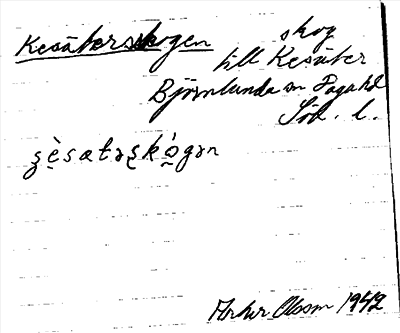 Kesäterskogen
skog
till Kesäter
Björnlunda sn Daga hd
Söd. l.
ʂèsatəʂkò̱gən
Arthur Olsson 1942